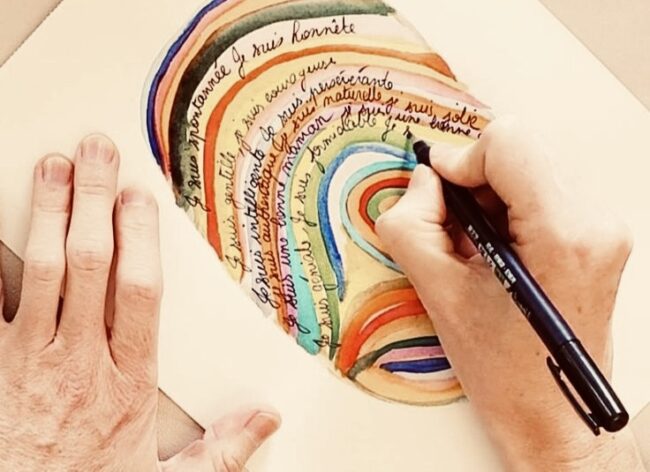 Je suis spontannée Je suis honnête
Je suis gentille je suis courageuse
Je suis intelligente Je suis persévérante
Je suis authentique Je suis naturelle je suis jolie
Je suis une bonne maman je suis une bonne
Je suis géniale Je suis formidable Je s